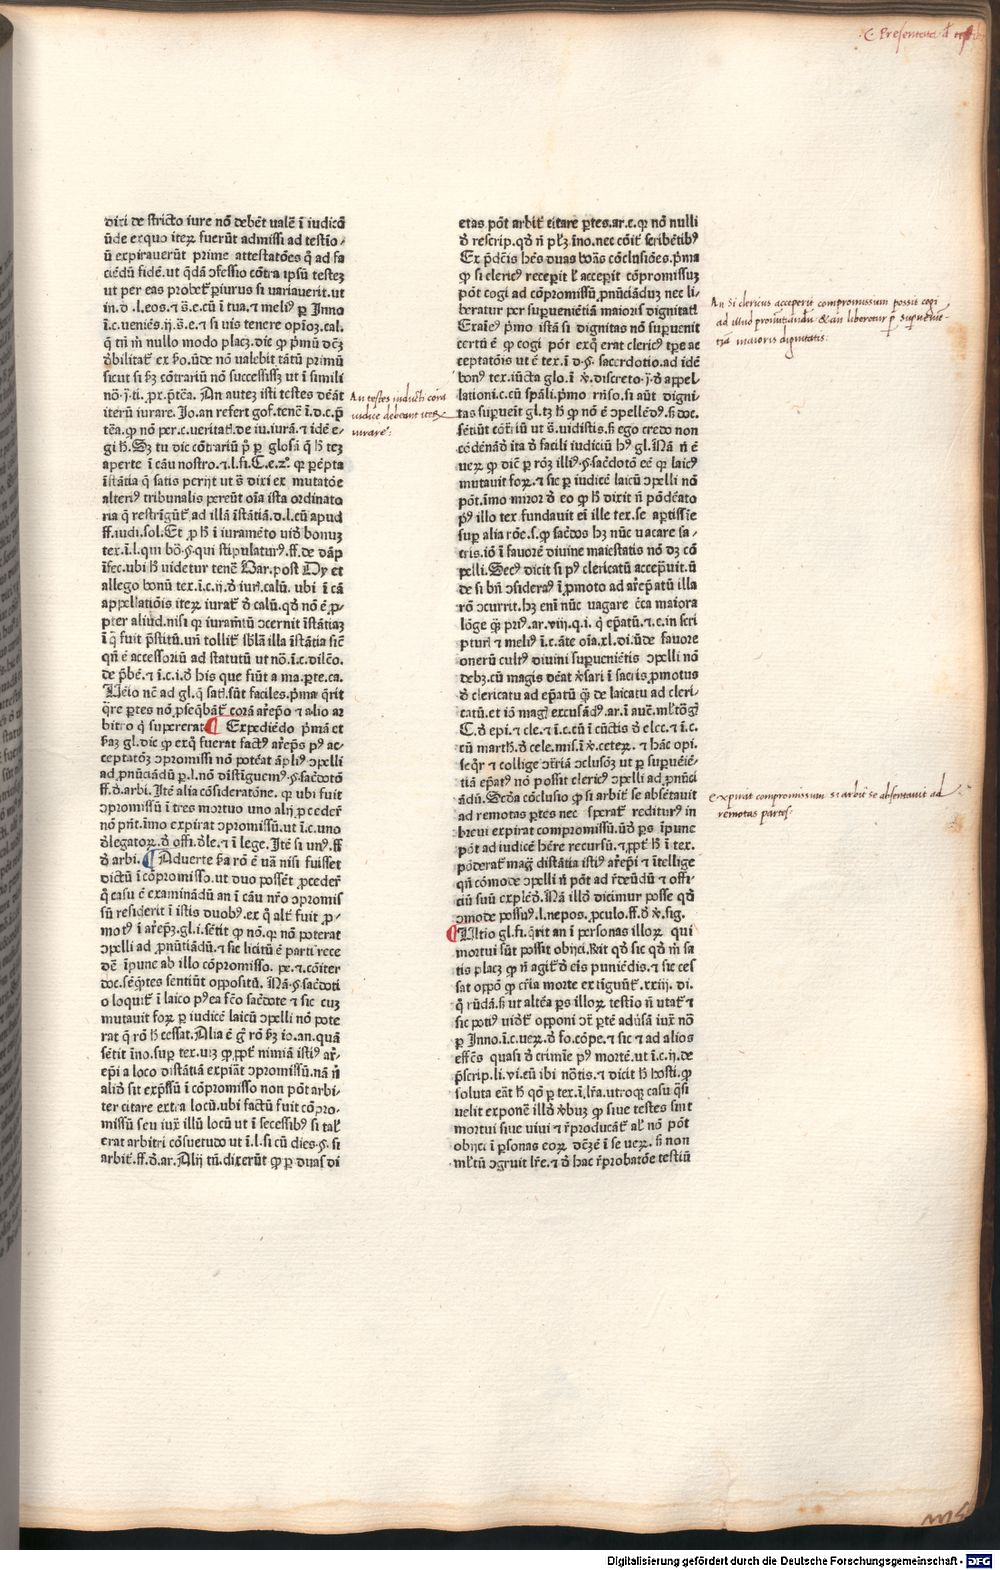 C. Presentata d
diri de stricto iure nõ debẽt valẽ ĩ iudicõ
ũde ex quo iteꝝ fuerũt admissi ad testio⸗
ũ expirauerũt prime attestatões q̃ ad fa
ciẽdũ fidẽ.ut q̃dã ɔfessio cõtra ipsũ testez
ut per eas probet᷑ ꝑiurus si variauerit.ut
in.d.l.eos.⁊ ũ.s̃.e.cũ ĩ tua.⁊ meliꝰ ꝑ Inno
ĩ.c.ueniẽs.ij.s̃.e.⁊ si uis tenere opĩoꝫ.cal.
q̃ tñ m̃ nullo modo placꝫ.dic̃ ꝙ p̃mũ dẽꝫ
nõ.j.ti.ꝓx.p̃tẽa. An autez isti testes deãt
iterũ iurare. Jo.an refert gof.tenẽ ĩ.d.c.p̃
tẽa.ꝙ nõ per.c.veritatꝭ.de iu.iurã.⁊ idẽ e⸗
gi h̃. Sꝫ tu dic cõtrariũ p̃ ꝑ glosã q̃ h̃ teꝫ
aperte ĩ cãu nostro.⁊.l.fi.C.e.z°. qꝛ pẽpta
ĩstãtia q̃ satis perijt ut s̃ diri ex mutatõe
alteriꝰ tribunalis pereũt oĩa ista ordinato
ria q̃ restrĩgũt᷑ ad illã ĩstãtiã.d.l.cũ apud
ff.iudi.sol. Et ꝓ h̃ ĩ iuramẽto uidꝫ bonuꝫ
tex.ĩ.l.qui bõ.§.qui stipulaturꝰ.ff.de dãp
ĩfec.ubi h̃ uidetur tenẽ Bar.post Dy et
allego bonũ tex.ĩ.c.ij.d̃ iurꝭ.calũ. ubi ĩ cã
appellatiõis iteꝝ iurat᷑ d̃ calũ.qd̃ nõ ẽ ꝓ⸗
pter aliud.nisi qꝛ iuramẽtũ ɔcernit ĩstãtiaꝫ
qñ ẽ accessoriũ ad statutũ ut nõ.ĩ.c.dilẽo.
de p̃bẽ.⁊ ĩ.c.i.d̃ his que fiũt a ma.ꝑte.ca.
q̃re ꝑtes nõ ꝓseq̃bãt᷑ corã ar̃epõ ⁊ alio ar
bitro q̃ supererat ¶ Expediẽdo p̃mã et
ẜaꝫ gl.dic̃ ꝙ exq̃ fuerat factꝰ ar̃epꝭ pꝰ ac⸗
ceptatõꝫ ɔpromissi nõ potẽat ãpliꝰ ɔpelli
ad ꝓnũciãdũ ꝑ.l.nõ distĩguemꝰ.§.sacd̃otõ
ff.d̃.arbi. Itẽ alia cõsideratõne. qꝛ ubi fuit
ɔpromissũ ĩ tres mortuo uno alij ꝓceder̃
nõ pñt.ĩmo expirat ɔpromissũ.ut ĩ.c.uno
d̃legatoꝝ.d̃ offi.d̃le.⁊ ĩ lege. Itẽ si unꝰ.ff
d̃ arbi. ¶ Aduerte ẜa rõ ẽ uã nisi fuisset
dictũ ĩ cõpromisso.ut duo possẽt ꝓceder̃
q̃ casu ẽ examinãdũ an ĩ cãu nr̃o ɔpromis
sũ residerit ĩ istis duobꝰ.ex q̃ alt᷑ fuit ꝓ⸗
motꝰ ĩ ar̃epꝫ.gl.i.sẽtit ꝙ nõ.qꝛ nõ poterat
ɔpelli ad ꝓnũtiãdũ.⁊ sic licitũ ẽ parti rece
dẽ ĩpune ab illo cõpromisso. ꝑe.⁊ cõiter
doc.sẽq̃tes sentiũt oppositũ. Nã.§.sacd̃oti
o loquit᷑ ĩ laico pꝰea fẽo sacd̃ote ⁊ sic cuꝫ
mutauit foꝝ ꝑ iudicẽ laicũ ɔpelli nõ pote
rat q̃ rõ h̃ cessat. Alia ẽ g̃ rõ ẜꝫ io.an.quã
sẽtit ĩno.suꝑ tex.uiꝫ ꝙ ꝓpt᷑ nimiã istiꝰ ar̃⸗
ep̃i a loco distãtiã expiãt ɔpromissũ.nã ñ
aliõ sit exp̃ssũ ĩ cõpromisso non põt arbi⸗
ter citare extra locũ.ubi factũ fuit cõpro⸗
missũ seu iux̃ illũ locũ ut ĩ secessibꝰ si tal᷑
erat arbitri cõsuetudo ut ĩ.l.si cũ dies.§. si
arbit᷑.ff.d̃.ar. Alij tñ.dixerũt ꝙ ꝑ duas di
An testes inducti corã
iudice debeant iteꝝ
iurare:
etas põt arbit᷑ citare ꝑtes.ar.c.qꝛ nõ nulli
d̃ rescrip.qd̃ ñ plꝫ ĩno.nec cõit᷑ scribẽtibꝰ
Ex p̃dc̃is hẽs duas bõas cõclusiões. p̃ma
ꝙ si clericꝰ receperit ł acceperit cõpromissuꝫ
põt cogi ad cõpromissũ ꝓnũciãduꝫ nec li⸗
beratur per superueniẽtiã maioris dignitatꝭ
certũ ẽ ꝙ cogi põt exq̃ erat clericꝰ tꝑe ac
ceptatõis ut ẽ tex.ĩ.d.§. sacerdotio.ad idẽ
bonꝰ tex.iũcta glo.ĩ c̃.discreto.j.d̃ appel⸗
lationi.c.cũ sp̃ali.p̃mo rñso.si aũt digni⸗
tas suꝑueĩt gl.tꝫ h̃ ꝙ nõ ẽ ɔpellẽdꝰ.ẜ doc.
sẽtiũt cõt᷑iũ ut s̃.uidistis.ẜ ego credo non
cõdẽnãdꝰ ita d̃ facili iudiciũ hꝰ gl. Nã ñ ẽ
ueꝝ ꝙ dic̃ ꝑ rõꝫ illiꝰ.§.sacd̃otõ ẽc̃ qꝛ laicꝰ
mutauit foꝝ.⁊ sic ꝑ iudicẽ laicũ ɔpelli nõ
põt.ĩmo miror d̃ eo ꝙ h̃ dixit ñ põdẽato
p̃ꝰ illo tex fundauit eĩ ille tex.se aꝑtissĩe
suꝑ alia rõe.s.ꝙ sacd̃os hꝫ nũc uacare sa⸗
cris.iõ ĩ fauorẽ diuine maiestatis nõ dꝫ cõ
pelli. Secꝰ dicit si pꝰ clericatũ acceꝑuit.ũ
de si bñ ɔsiderasꝭ ĩ ꝓmoto ad ar̃ep̃atũ illa
rõ ɔcurrit.hꝫ enĩ nũc uagare c̃ca maiora
lõge q̃ꝫ priꝰ.ar.viij.q.i. q̃ ep̃atũ.⁊.e.in scri
pturꝭ ⁊ meliꝰ ĩ.c.ãte oĩa.xl.di.ũde fauore
onerũ cultꝰ diuini suꝑueniẽtis ɔpelli nõ
debꝫ.cũ magis deãt ꝟsari ĩ sacris ꝓmotus
d̃ clericatu ad ep̃atũ q̃ꝫ de laicatu ad cleri⸗
catũ.et iõ magꝭ excusãdꝰ.ar.ĩ auc̃.ml̃tõgꝭ
C.d̃ epi.⁊ cle.⁊ ĩ.c.cũ ĩ cũctis d̃ elec.⁊ ĩ.c.
cũ marth.d̃ cele.mis.ĩ ꝟ.ceteꝝ. ⁊ hãc opi.
seq̃r ⁊ collige ɔt᷑riã ɔclusõꝫ ut ꝑ suꝑueiẽ⸗
tiã ep̃atꝰ nõ possit clericꝰ ɔpelli ad ꝓnũci
ãdũ. Secõa cõclusio ꝙ si arbit᷑ se absẽtauit
ad remotas ꝑtes nec sperat᷑ rediturꝰ in
breui expirat compromissũ.ũd̃ ꝑs ĩpune
põt ad iudicẽ hẽre recursũ.⁊ ꝓpt᷑ h̃ ĩ tex.
põderat᷑ magꝭ distãtia istiꝰ ar̃epĩ ⁊ ĩtellige
qñ cõmode ɔpelli ñ põt ad r̃deũdũ ⁊ offi⸗
ciũ suũ explẽdꝫ. Nã illd̃ dicimur posse qd̃
ɔmode possuꝰ.l.nepos.ꝓculo.ff.d̃ ꝟ.sig.
¶ Ultio gl.fi.q̃rit an ĩ personas illoꝝ qui
mortui sũt possit obijci. Rñt qd̃ sic qd̃ m̃ sa
tis placꝫ ꝙ ñ agit᷑ d̃ eĩs puniẽdis.⁊ sic ces
sat oppõ ꝙ cr̃ia morte extĩguũt᷑.xxiij. di.
q̃ rũdã.ẜ ut altẽa ꝑs illoꝝ testio ñ utat᷑ ⁊
sic potiꝰ uidt᷑ opponi ɔt᷑ ꝑtẽ adũsã iux̃ nõ
ꝑ Inno.ĩ.c.ueꝝ.d̃ fo.cõpe.⁊ sic ⁊ ad alios
effc̃s quasi d̃ crimĩe pꝰ mortẽ.ut ĩ.c.ij.de
p̃scrip.li.vi.eũ ibi nõtis.⁊ dicit h̃ hosti.ꝙ
soluta eãt h̃ qõ ꝑ tex.ĩ.lr̃a.utroqꝫ casu q̃si
uelit exponẽ illd̃ ꝟbuꝫ ꝙ siue testes sint
mortui siue uiui ⁊ r̃producãt᷑ al᷑ nõ põt
obijci ĩ ꝑsonas eoꝝ dẽꝫẽ ĩ se ueꝝ. ẜ non
ml̃tũ ɔgruit lr̃e.⁊ d̃ hac r̃probatõe testiũ
An si clericus acceperit compromissum possit cogi
ad illud pronuntiandũ & an liberetur ꝑ supueniẽ⸗
tiã maioris dignitatis:
Expirat compromissum si arbiť se absentauit ad
remotas partes.
Digitalisierung gefördert durch die Deutsche Forschungsgemeinschaft - DFG